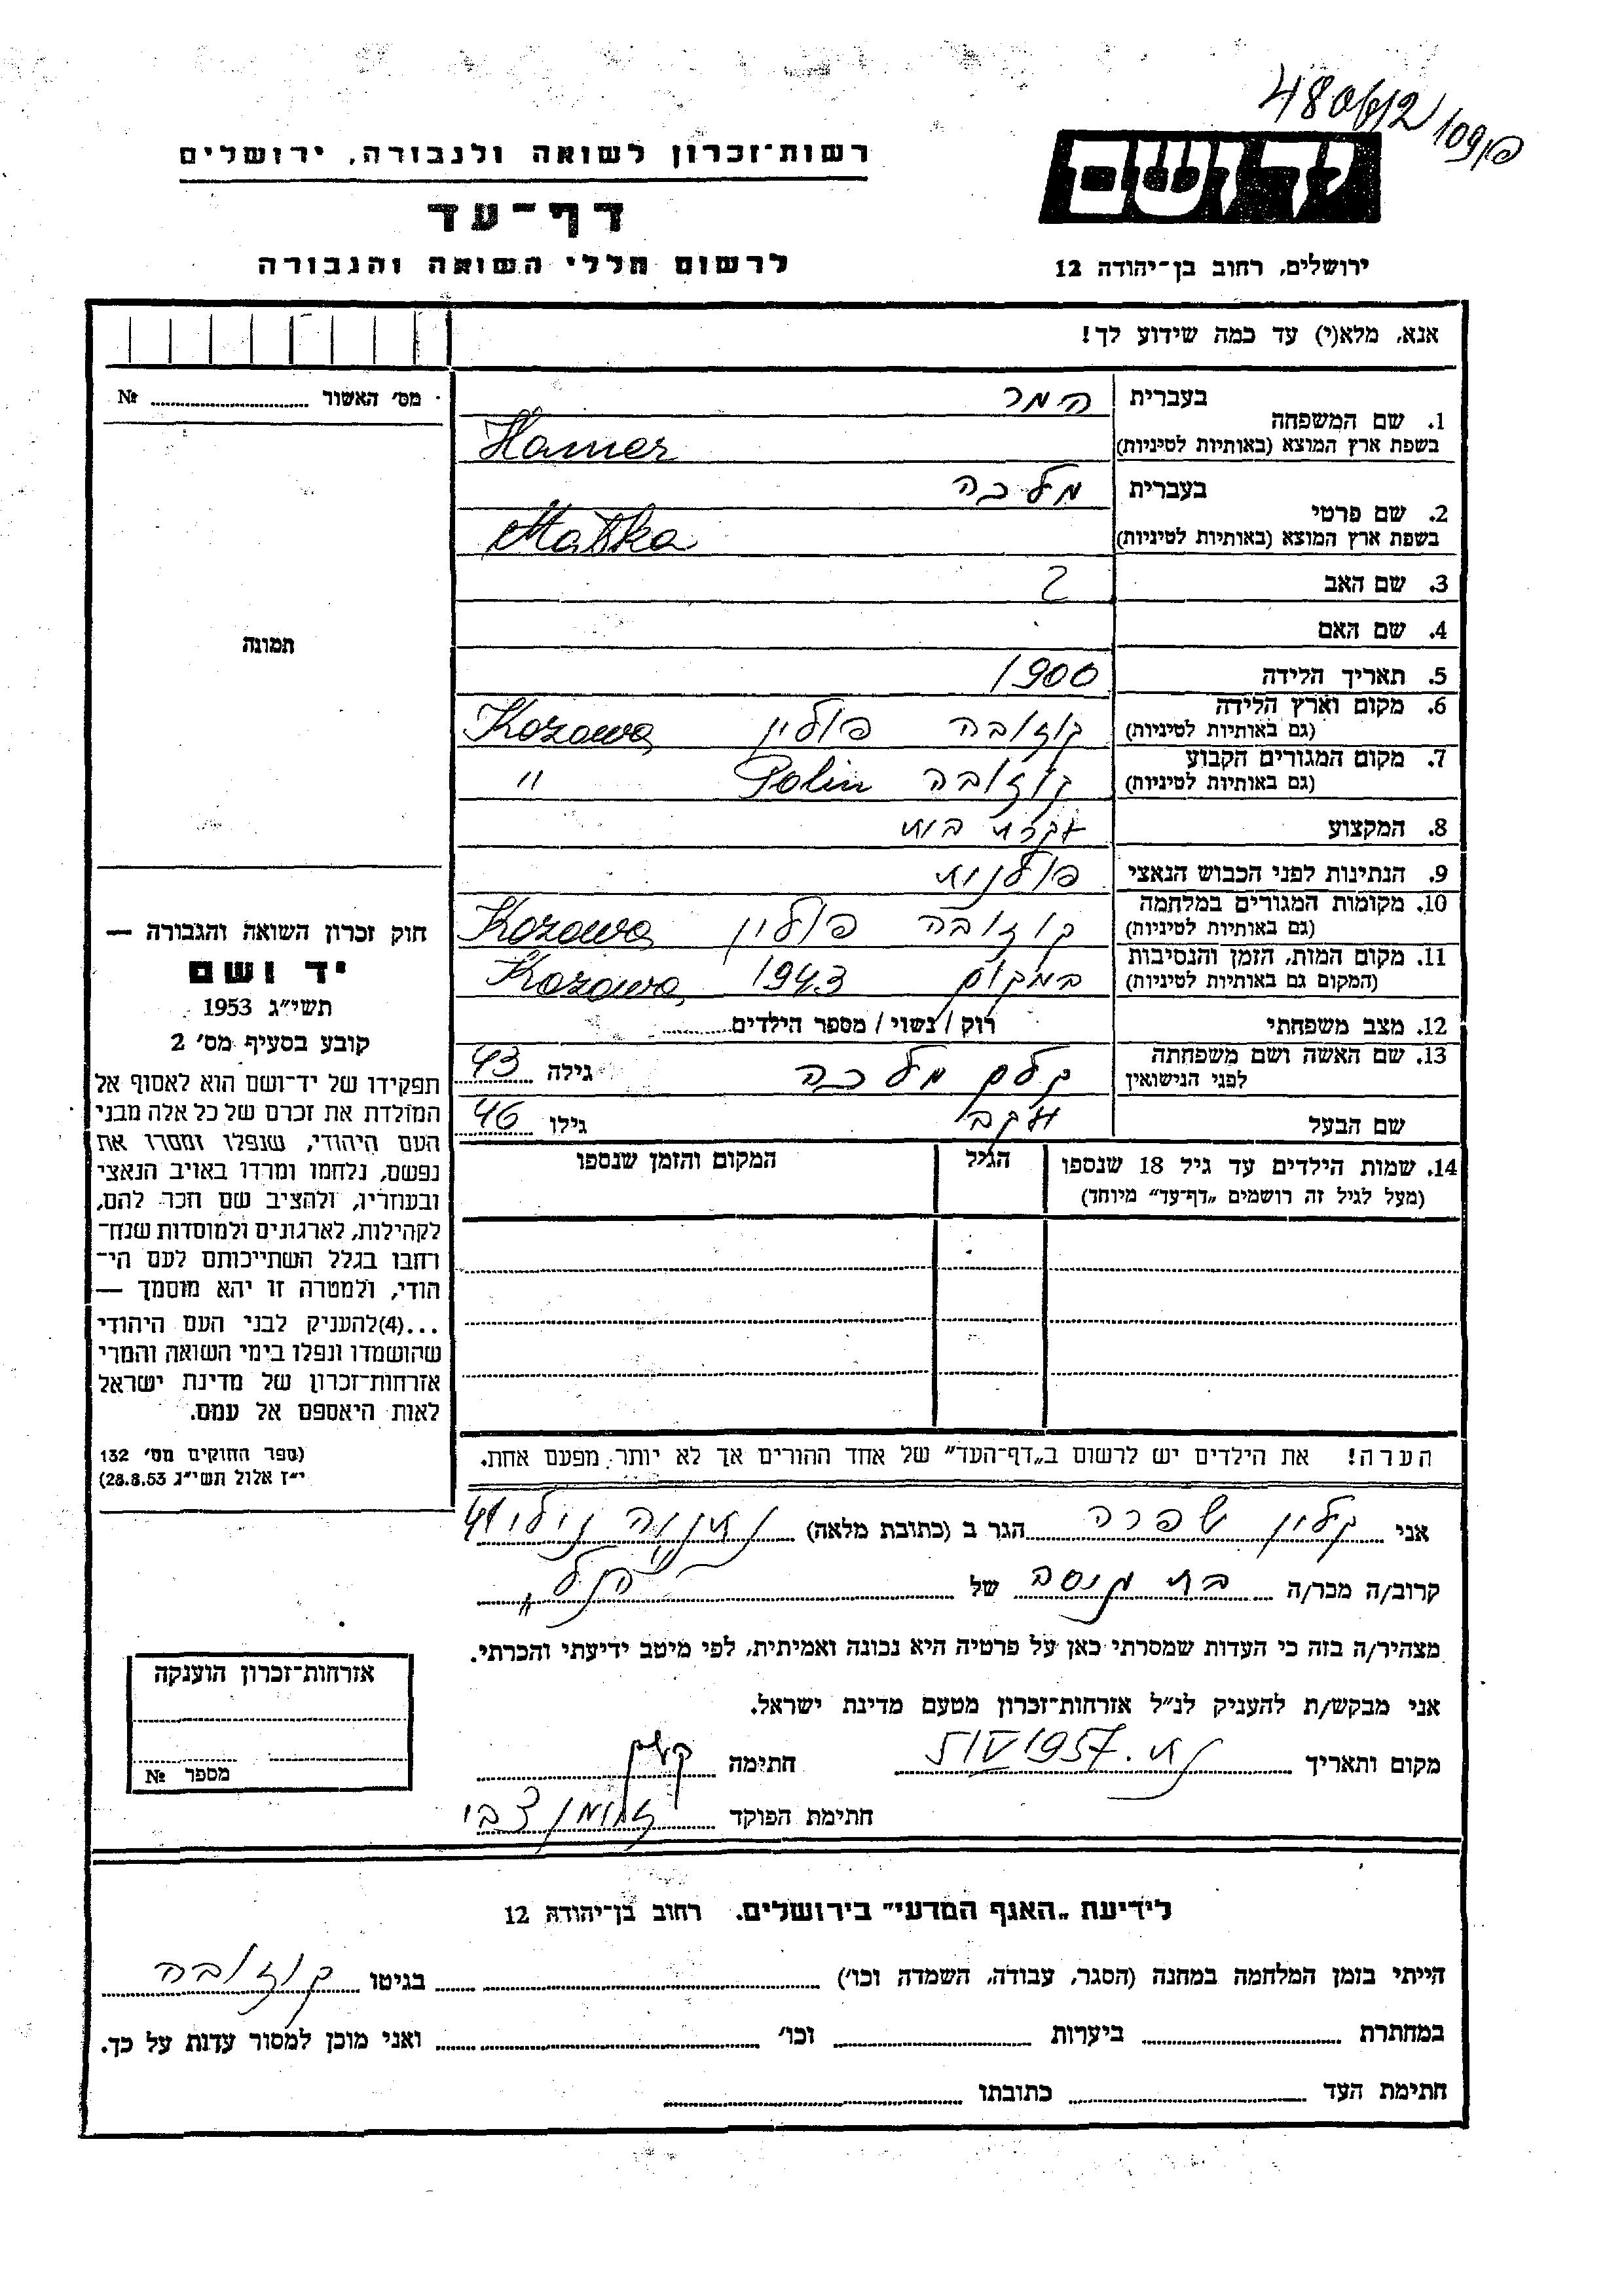 רשות־זכרון לשואה ולגבורה, ירושלים
דף־עד
לרשום חללי השואה והגבורה
יד ושם
ירושלים, רחוב בן־יהודה 12
אנא, מלא(י) עד כמה שידוע לך!
מס׳ האשור № 
1. שם המשפחה בעברית המר
בשפת ארץ המוצא (באותיות לטיניות) Hamer
2. שם פרטי בעברית מלכה
בשפת ארץ המוצא (באותיות לטיניות) Malka
3. שם האב
4. שם האם
5. תאריך הלידה 1900
6. מקום וארץ הלידה (גם באותיות לטיניות) קוזובה פולין Kozowa
7. מקום המגורים הקבוע (גם באותיות לטיניות) קוזובה Polin "
8. המקצוע עקרת בית
9. הנתינות לפני הכבוש הנאצי פולנית
10. מקומות המגורים במלחמה (גם באותיות לטיניות) קוזובה פולין Kozowa
11. מקום המות, הזמן והנסיבות (המקום גם באותיות לטיניות) במקום 1943 Kozowa
12. מצב משפחתי רוק / נשוי / מספר הילדים
13. שם האשה ושם משפחתה לפני הנישואין מלכה גילה 43
שם הבעל יעקב גילו 46
14. שמות הילדים עד גיל 18 שנספו
(מעל לגיל זה רושמים „דף־עד" מיוחד)
הגיל
המקום והזמן שנספו
הערה! את הילדים יש לרשום ב„דף־העד" של אחד ההורים אך לא יותר מפעם אחת.
תמונה
חוק זכרון השואה והגבורה —
יד ושם
תשי״ג 1953
קובע בסעיף מס׳ 2
תפקידו של יד־ושם הוא לאסוף אל
המולדת את זכרם של כל אלה מבני
העם היהודי, שנפלו ומסרו את
נפשם, נלחמו ומרדו באויב הנאצי
ובעוזריו, ולהציב שם וזכר להם,
לקהילות, לארגונים ולמוסדות שנח־
רחבו בגלל השתייכותם לעם הי־
הודי, ולמטרה זו יהא מוסמך —
...(4)להעניק לבני העם היהודי
שהושמדו ונפלו בימי השואה והמרי
אזרחות־זכרון של מדינת ישראל
לאות היאספם אל עמם.
(ספר החוקים מס׳ 132
י״ז אלול תשי״ג 28.8.53)
אני שפרה הגר ב (כתובת מלאה) נתניה
קרוב/ה מכר/ה של הנ״ל
מצהיר/ה בזה כי העדות שמסרתי כאן על פרטיה היא נכונה ואמיתית, לפי מיטב ידיעתי והכרתי.
אני מבקש/ת להעניק לנ״ל אזרחות־זכרון מטעם מדינת ישראל.
מקום ותאריך 5/IV 1957 חתימה
חתימת הפוקד צבי
אזרחות־זכרון הוענקה
מספר №
לידיעת „האגף המדעי" בירושלים, רחוב בן־יהודה 12
הייתי בזמן המלחמה במחנה (הסגר, עבודה, השמדה וכו׳) בגיטו קוזובה
במחתרת ביערות וכו׳ ואני מוכן למסור עדות על כך.
חתימת העד כתובתו